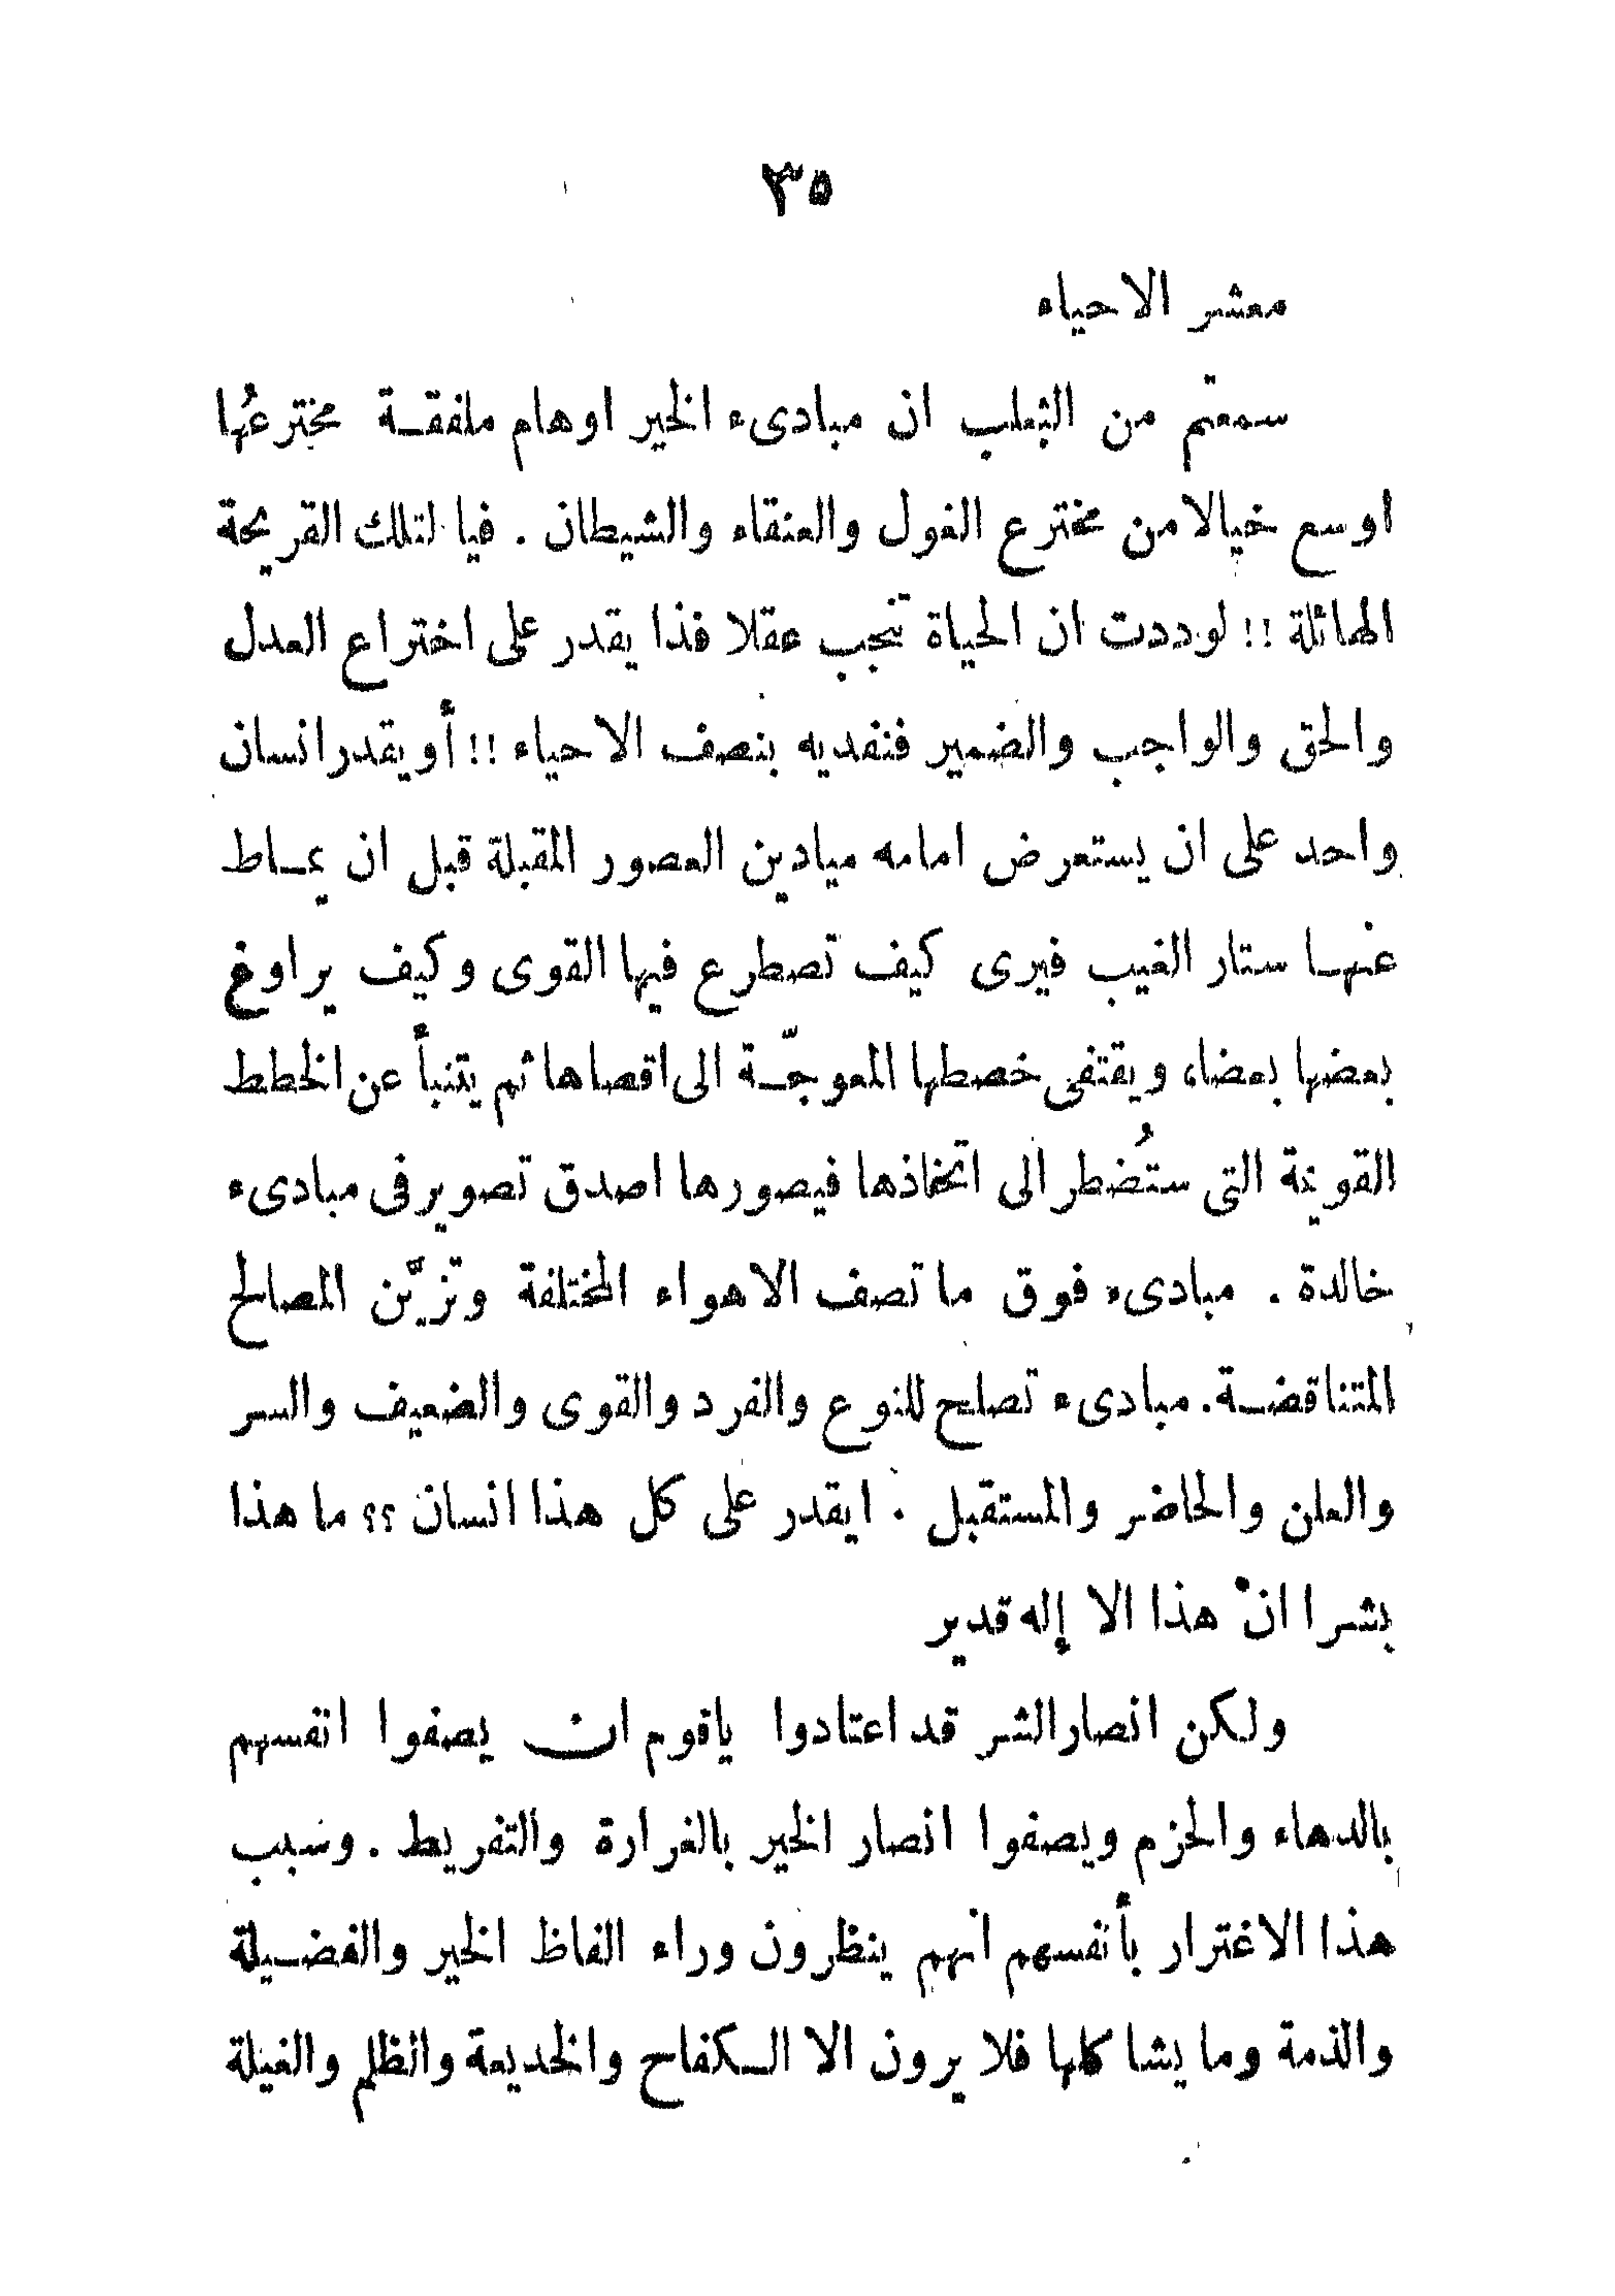 ٣٥
معشر الاحياء
سمعتم من الثعلب ان مبادىء الخير اوهام ملفقة مخترعُها
اوسع خيالا من مخترع الغول والعنقاء والشيطان . فيا لتلك القريحة
الهائلة !! لوددت ان الحياة تنجب عقلا فذا يقدر على اختراع العدل
والحق والواجب والضمير فنفديه بنصف الاحياء !! أو يقدر انسان
واحد على ان يستعرض امامه ميادين العصور المقبلة قبل ان يماط
عنها ستار الغيب فيرى كيف تصطرع فيها القوى وكيف يراوغ
بعضها بعضا، ويقتفى خططها المعوجّة الى اقصاها ثم يتنبأ عن الخطط
القويمة التى ستُضطر الى اتخاذها فيصورها اصدق تصوير فى مبادىء
خالدة . مبادىء فوق ما تصف الاهواء المختلفة وتزيّن المصالح
المتناقضة . مبادىء تصلح للنوع والفرد والقوى والضعيف والسر
والعلن والحاضر والمستقبل . ايقدر على كل هذا انسان ؟؟ ما هذا
بشرا انْ هذا الا إله قدير
ولكن انصار الشر قد اعتادوا ياقوم ان يصفوا انفسهم
بالدهاء والحزم ويصفوا انصار الخير بالغرارة والتفريط . وسبب
هذا الاغترار بأنفسهم انهم ينظرون وراء الفاظ الخير والفضيلة
والذمة وما يشا كلها فلا يرون الا الكفاح والخديعة والظلم والغيلة